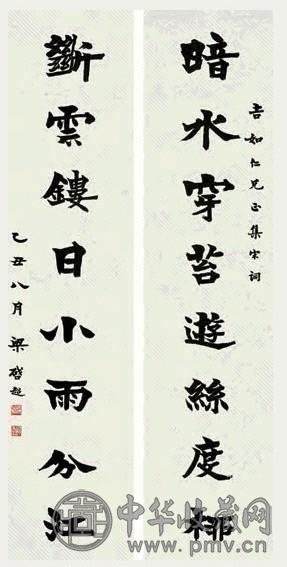 吉如仁兄正集宋詞
暗水穿苔遊絲度柳
斷雲鏤日小雨分江
乙丑八月梁啓超
中华收藏网
www.pmv.cn